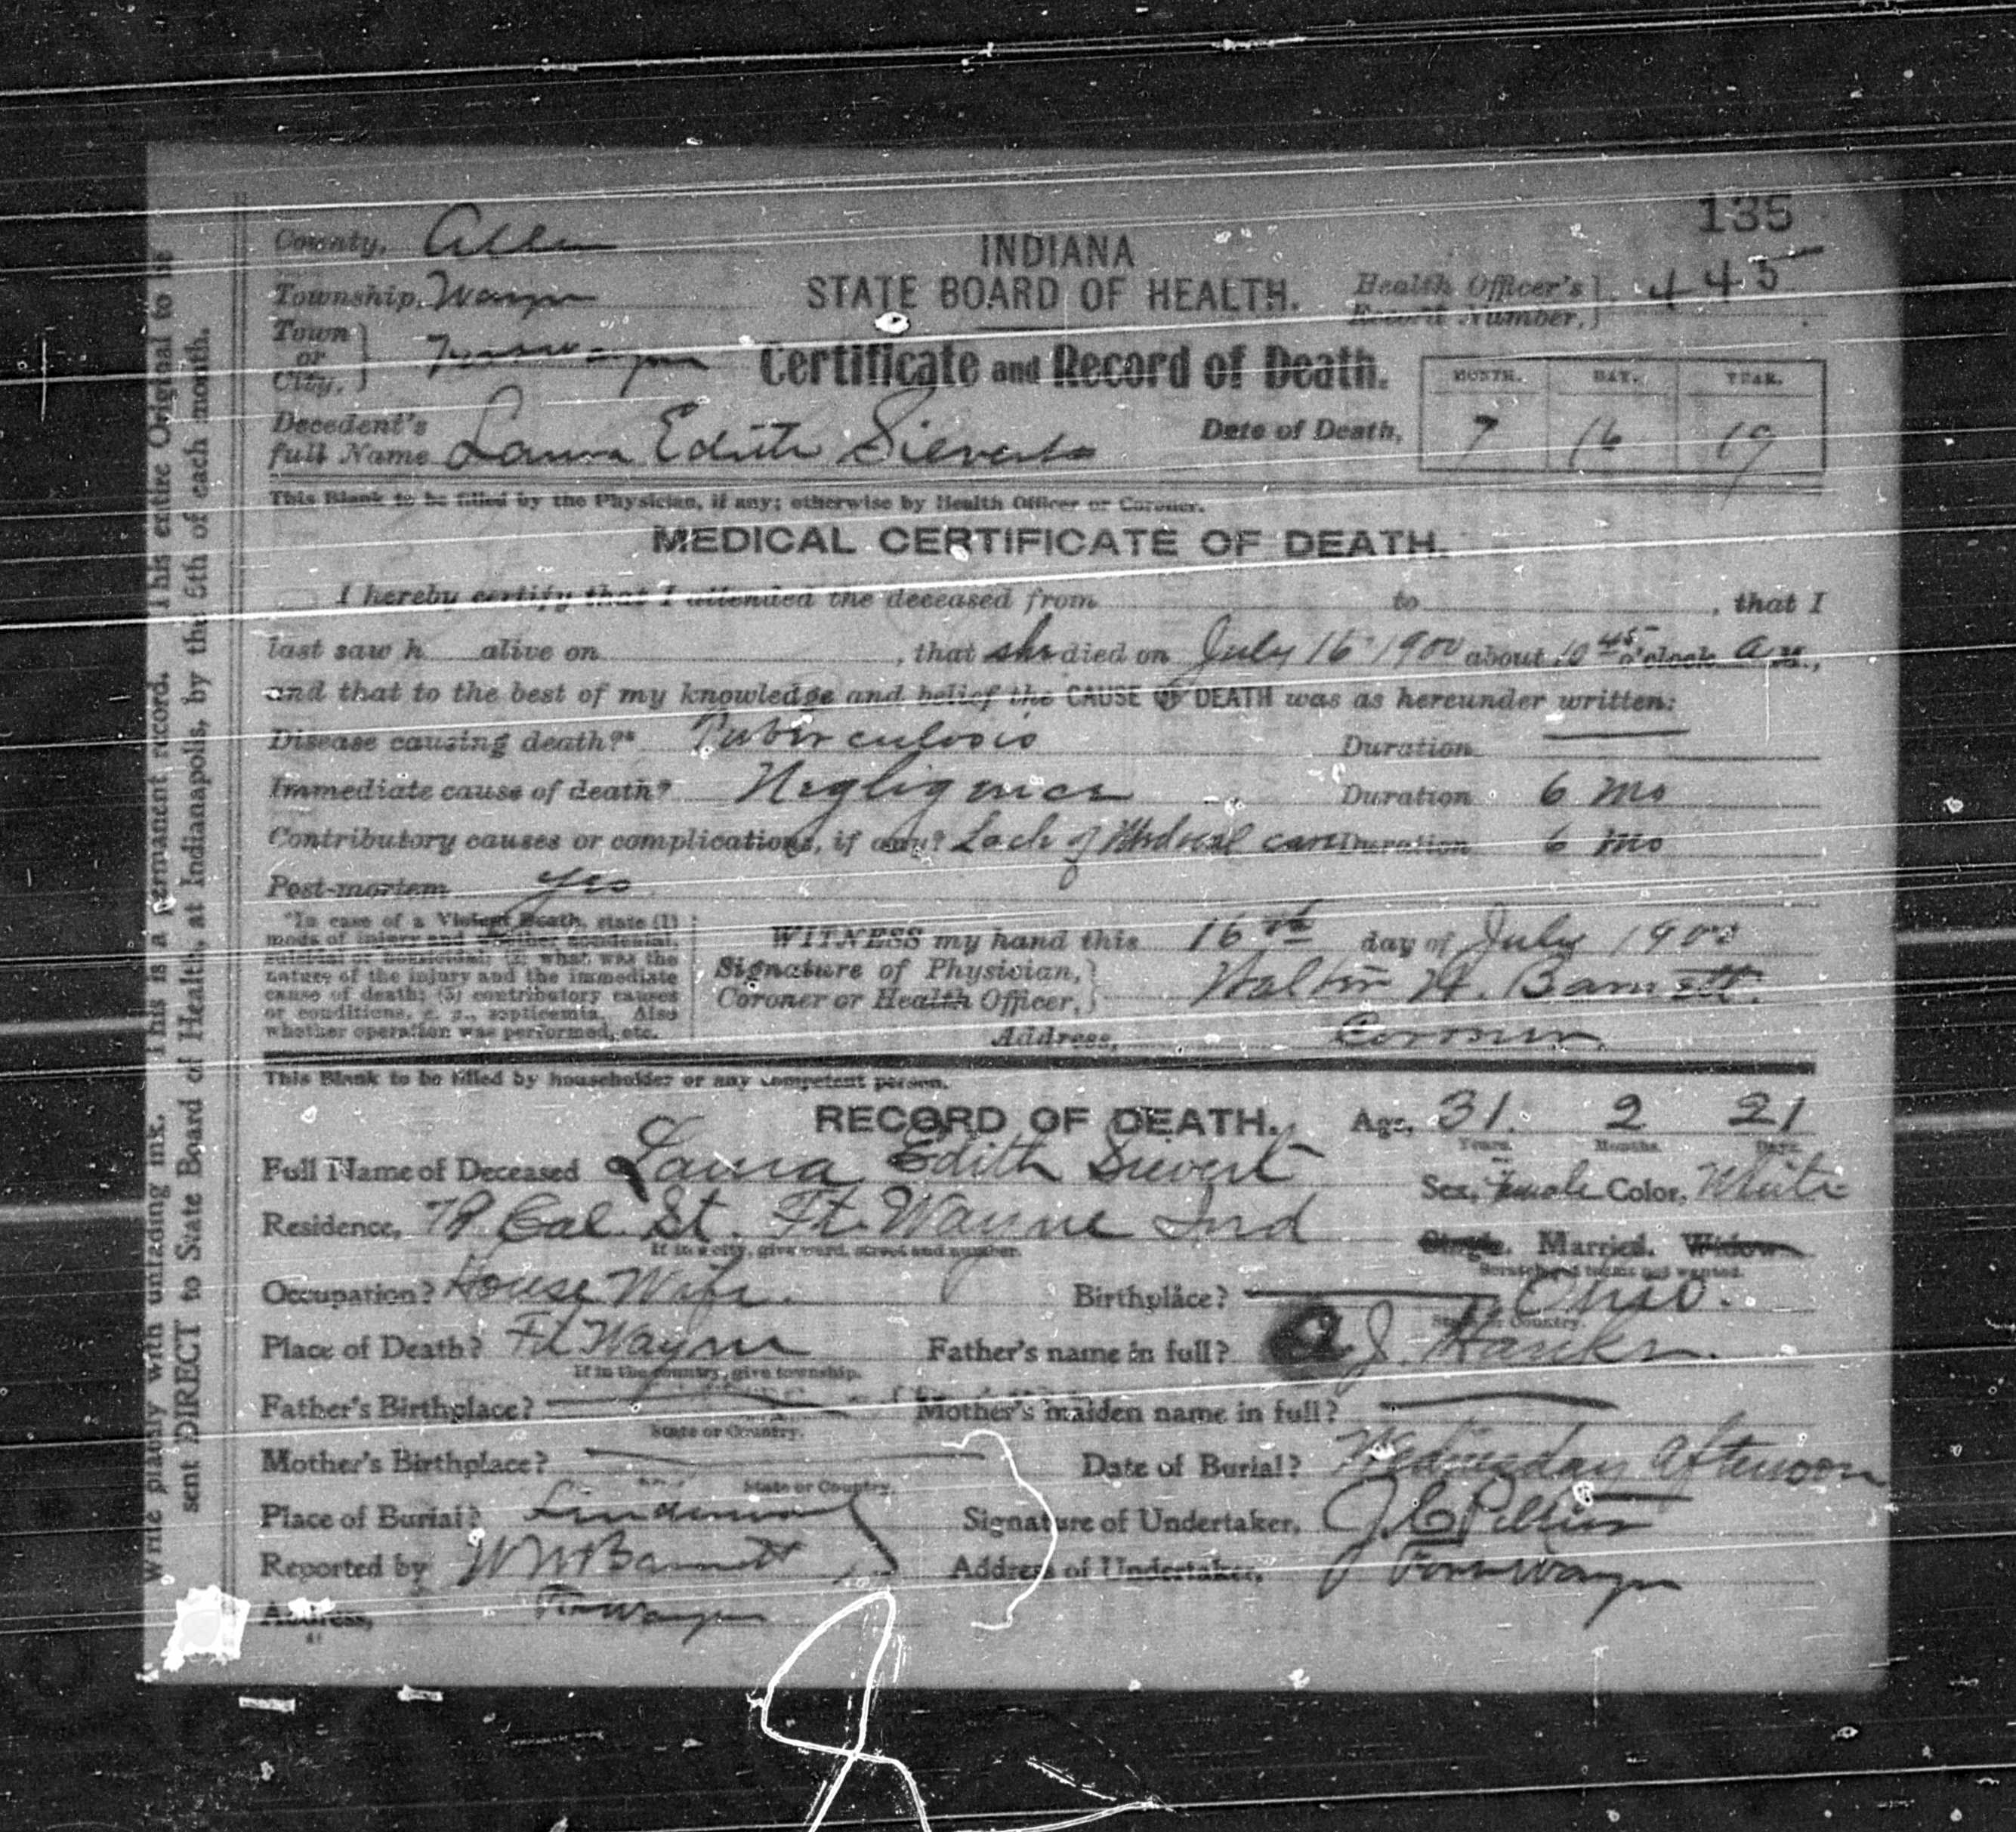 135
County, Allen
INDIANA
Township, Wayne
STATE BOARD OF HEALTH.
Health Officer's Record Number, 445
Town or City, Fort Wayne
Certificate and Record of Death.
MONTH. DAY. YEAR.
Decedent's full Name Laura Edith Sieverts
Date of Death, 7 16 19
This Blank to be filled by the Physician, if any; otherwise by Health Officer or Coroner.
MEDICAL CERTIFICATE OF DEATH.
I hereby certify that I attended the deceased from to , that I
last saw h alive on , that she died on July 16 1900 about 10 45 o'clock A M.,
and that to the best of my knowledge and belief the CAUSE OF DEATH was as hereunder written:
Disease causing death?* Tuberculosis Duration
Immediate cause of death? Negligence Duration 6 mo
Contributory causes or complications, if any? Lack of Medical care Duration 6 mo
Post-mortem yes
*In case of a Violent Death, state (1)
mode of injury and whether accidental,
suicidal or homicidal; (2) what was the
nature of the injury and the immediate
cause of death; (3) contributory causes
or conditions, e. g., septicemia. Also
whether operation was performed, etc.
WITNESS my hand this 16th day of July 1900
Signature of Physician, Coroner or Health Officer, Walter W. Barnett
Address, Coroner
This Blank to be filled by householder or any competent person.
RECORD OF DEATH. Age, 31. 2 21
Years. Months. Days.
Full Name of Deceased Laura Edith Sievert
Sex, Female Color, White
Residence, 79 Cal St. Ft. Wayne Ind
If in a city, give ward, street and number.
Single. Married. Widow
Scratch out terms not wanted.
Occupation? House Wife. Birthplace? Ohio.
State or Country.
Place of Death? Ft Wayne Father's name in full? A J. Hanks.
If in the country, give township.
Father's Birthplace? Mother's maiden name in full?
State or Country.
Mother's Birthplace? Date of Burial? Wednesday afternoon
State or Country.
Place of Burial? Lindenwood Signature of Undertaker, J. C. Peltier
Reported by W W Barnett Address of Undertaker, Fort Wayne
Address, Ft Wayne
Write plainly with unfading ink. This is a permanent record. This entire Original to be
sent DIRECT to State Board of Health, at Indianapolis, by the 5th of each month.